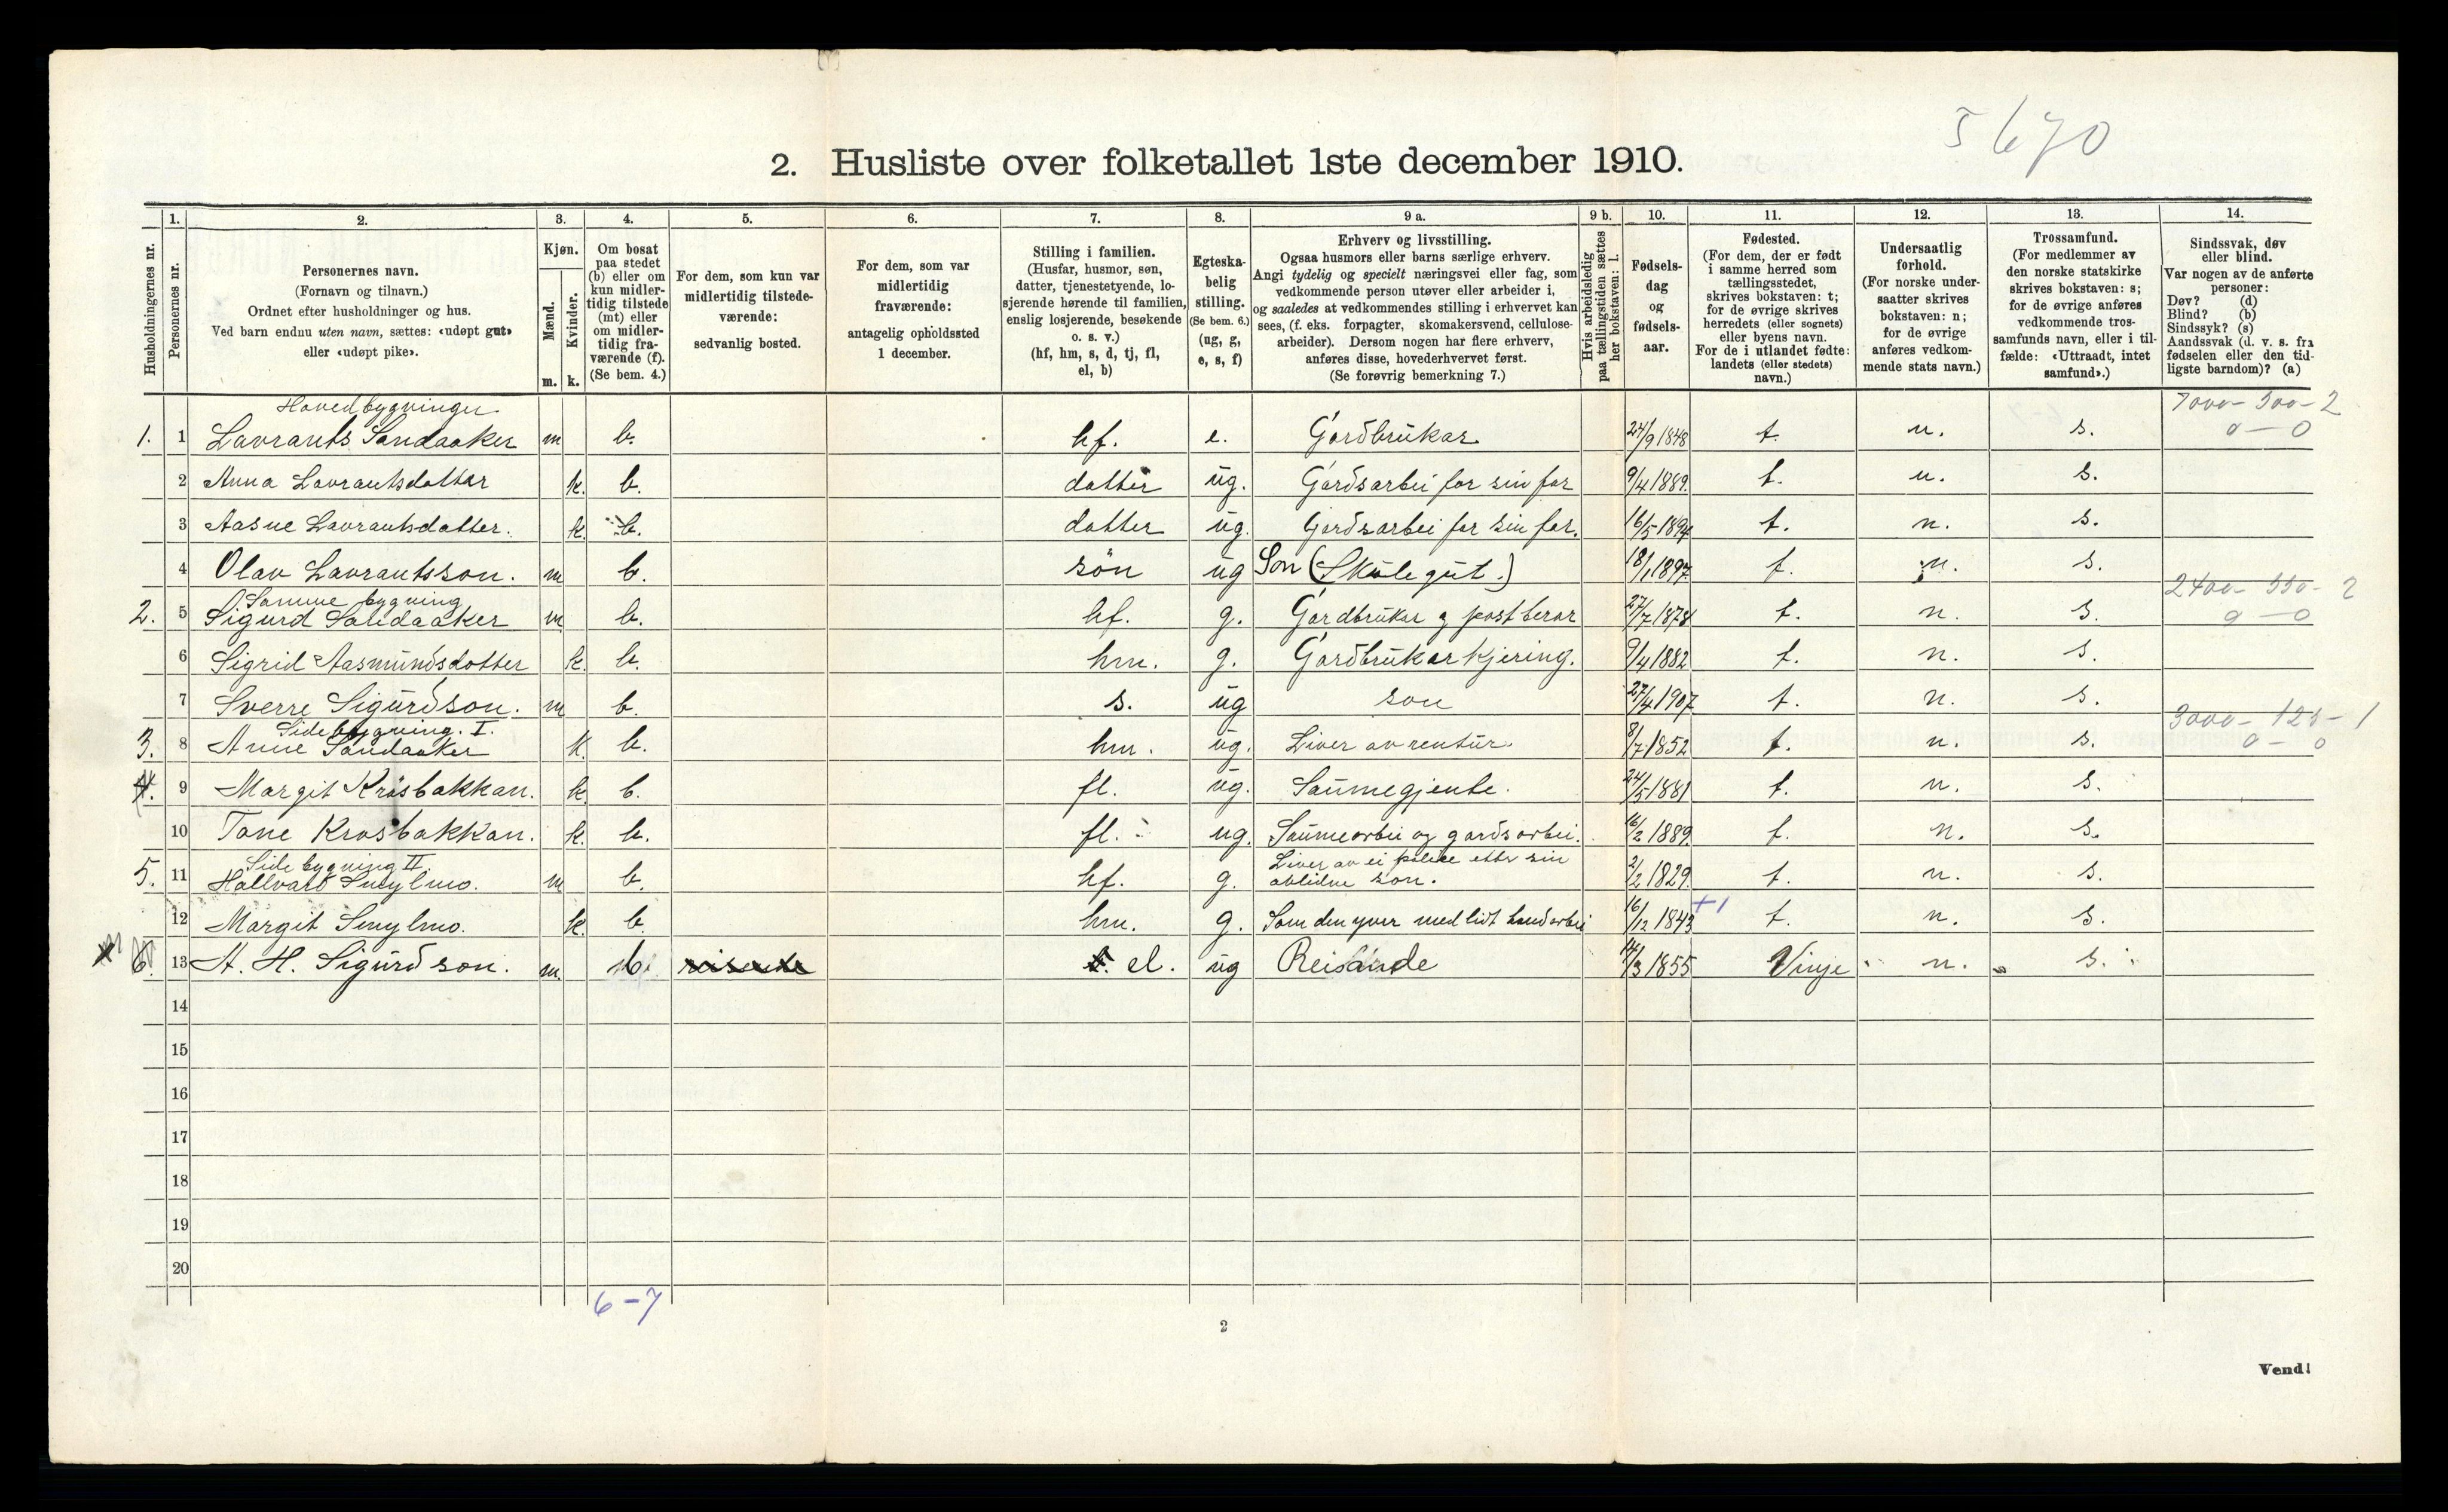 5670
2. Husliste over folketallet 1ste december 1910.
Husholdningernes nr.
1.
Personernes nr.
2.
Personernes navn.
(Fornavn og tilnavn.)
Ordnet efter husholdninger og hus.
Ved barn endnu uten navn, sættes: «udøpt gut»
eller «udøpt pike».
3.
Kjøn.
Mænd.
Kvinder.
m. k.
4.
Om bosat
paa stedet
(b) eller om
kun midler-
tidig tilstede
(mt) eller
om midler-
tidig fra-
værende (f).
(Se bem. 4.)
5.
For dem, som kun var
midlertidig tilstede-
værende:
sedvanlig bosted.
6.
For dem, som var
midlertidig
fraværende:
antagelig opholdssted
1 december.
7.
Stilling i familien.
(Husfar, husmor, søn,
datter, tjenestetyende, lo-
sjerende hørende til familien,
enslig losjerende, besøkende
o. s. v.)
(hf, hm, s, d, tj, fl,
el, b)
8.
Egteska-
belig
stilling.
(Se bem. 6.)
(ug, g,
e, s, f)
9 a.
Erhverv og livsstilling.
Ogsaa husmors eller barns særlige erhverv.
Angi tydelig og specielt næringsvei eller fag, som
vedkommende person utøver eller arbeider i,
og saaledes at vedkommendes stilling i erhvervet kan
sees, (f. eks. forpagter, skomakersvend, cellulose-
arbeider). Dersom nogen har flere erhverv,
anføres disse, hovederhvervet først.
(Se forøvrig bemerkning 7.)
9 b.
Hvis arbeidsledig
paa tællingstiden sættes
her bokstaven: l.
10.
Fødsels-
dag
og
fødsels-
aar.
11.
Fødested.
(For dem, der er født
i samme herred som
tællingsstedet,
skrives bokstaven: t;
for de øvrige skrives
herredets (eller sognets)
eller byens navn.
For de i utlandet fødte:
landets (eller stedets)
navn.)
12.
Undersaatlig
forhold.
(For norske under-
saatter skrives
bokstaven: n;
for de øvrige
anføres vedkom-
mende stats navn.)
13.
Trossamfund.
(For medlemmer av
den norske statskirke
skrives bokstaven: s;
for de øvrige anføres
vedkommende tros-
samfunds navn, eller i til-
fælde: «Uttraadt, intet
samfund».)
14.
Sindssvak, døv
eller blind.
Var nogen av de anførte
personer:
Døv? (d)
Blind? (b)
Sindssyk? (s)
Aandssvak (d. v. s. fra
fødselen eller den tid-
ligste barndom)? (a)
Hovedbygningen 7000 - 500 - 2
1. 1 Lavrants Sandaaker m b. hf. e. Gardbrukar. 24/9 1848 t. n. s. 0 - 0
2 Anna Lavrantsdotter k. b. dotter ug. Gardsarbei for sin far 9/4 1889. t. n. s.
3 Aasne Lavrantsdatter. k. b. dotter ug. Gardsarbei for sin far. 16/5 1894 t. n. s.
4 Olav Lavrantsson. m b. sön ug Son (Skulegut.) 18/1 1897 t. n. s.
Samme bygning 2400 - 550 - 2
2. 5 Sigurd Sandaaker m b. hf. g. Gardbrukar g postberar 27/7 1878 t. n. s. 0 - 0
6 Sigrid Aasmundsdotter k. b. hm. g. Gardbrukarkjering. 9/4 1882 t. n. s.
7 Sverre Sigurdson. m b. s. ug son 27/4 1907 t. n. s.
Sidebygning. I. 3000 - 125 - 1
3. 8 Anne Sandaaker k. b. hm. ug. Liver av rentur. 8/7 1852 t. n. s. 0 - 0
4. 9 Margit Krosbakkan. k. b. fl. ug. Saumegjente. 24/5 1881 t. n. s.
10 Tone Krosbakkan. k. b. fl. ug. Saumearbei og gardsarbei. 16/2 1889 t. n. s.
Side bygning II Liver av ei police etter sin
5. 11 Hallvard Smylmo. m b. hf. g. avlidne son. 2/2 1829. t. n. s.
12 Margit Smylmo. k. b hm. g. Som den yver med lidt handarbei 16/12 1843 +1 t. n. s.
6. 13 A. H. Sigurdson. m. b. reisende el. ug Reisande 14/3 1855 Vinje n. s.
14
15
16
17
18
19
20
6 - 7
2
Vend!